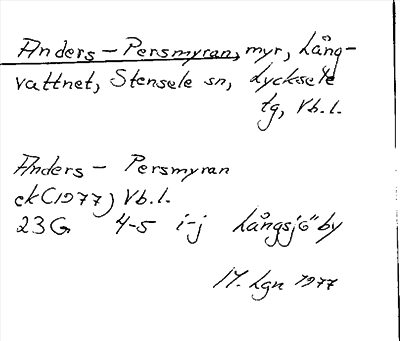 Anders-Persmyran, myr, Lång-
vattnet, Stensele sn, Lycksele
tg, Vb.l.
Anders- Persmyran
ek (1977) Vb.l.
23G 4-5 i-j Långsjöby
Lgn 1977